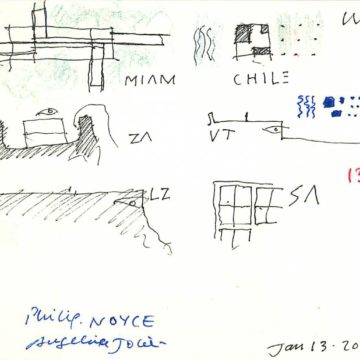 MIAM
CHILE
ZA
VT
LZ
SA
13
Philip. NOYCE
Jan 13 - 20